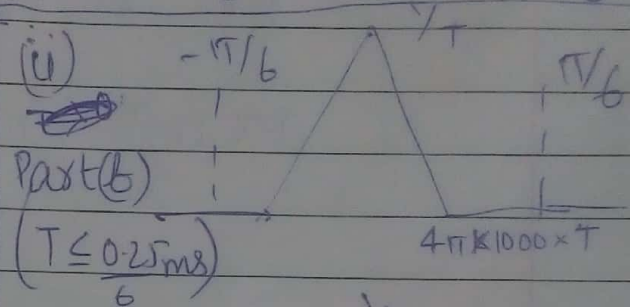 1/T
(ii) -π/6 π/6
Part(b)
(T ≤ 0.25ms/6) 4π×1000×T